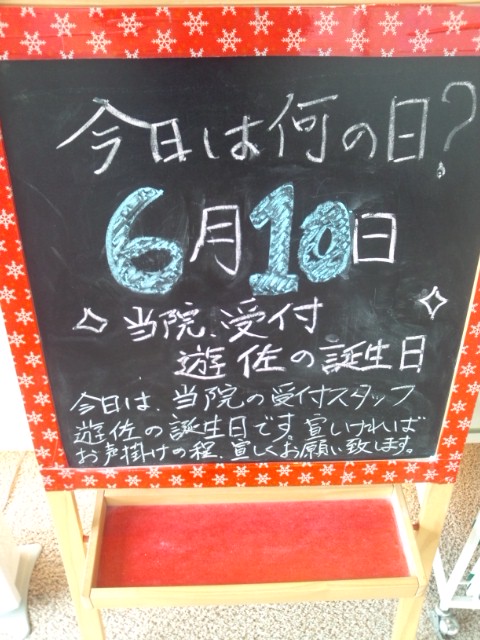 今日は何の日?
6月10日
当院、受付
遊佐の誕生日
今日は、当院の受付スタッフ
遊佐の誕生日です。宜しければ
お声掛けの程、宜しくお願い致します。